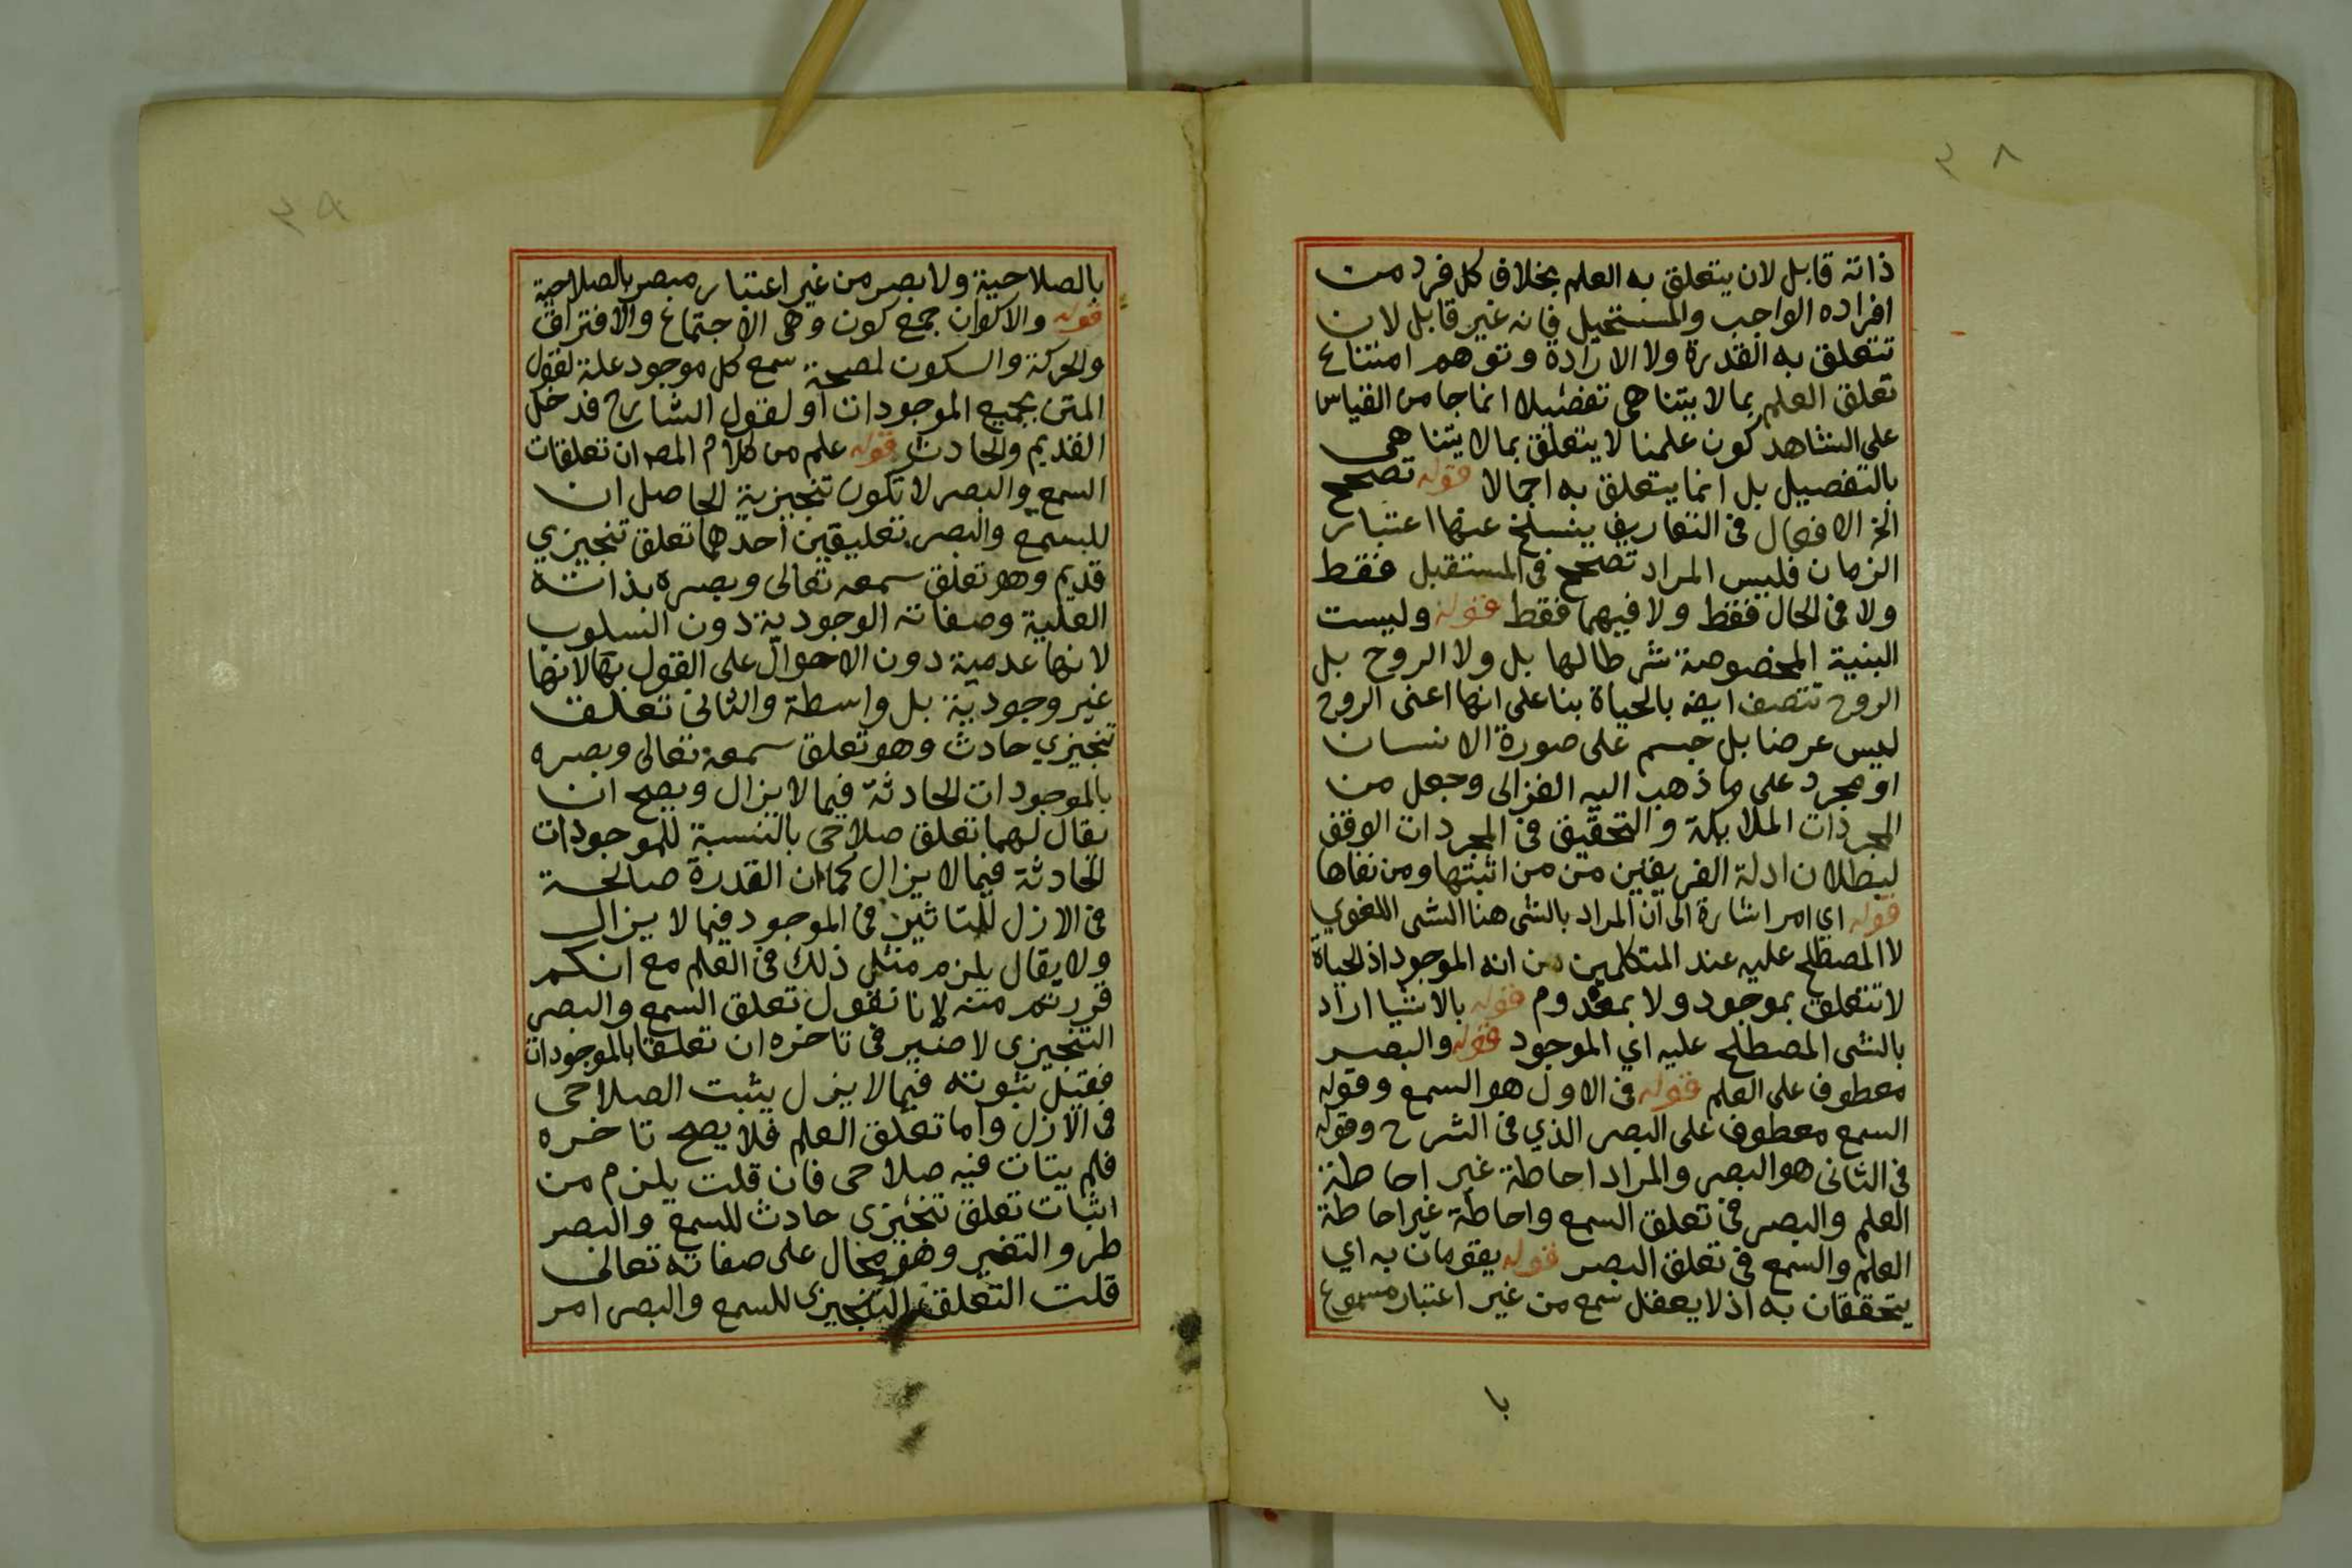 ٣٨
ذاته قابل لان يتعلق به العلم بخلاف كل فرد من
افراده الواجب والمستحيل فانه غير قابل لان
تتعلق به القدرة ولا الارادة وتوهم امتناع
تعلق العلم بما لا يتناهى تفضيلا انما جا من القياس
على الشاهد كون علمنا لا يتعلق بما لا يتناهى
بالتفصيل بل انما يتعلق به اجمالا قوله تصحح
الخ الافعال فى التعاريف ينسلخ عنها اعتبار
الزمان فليس المراد تصحح فى المستقبل فقط
ولا فى الحال فقط ولا فيهما فقط قوله وليست
البنية المخصوصة شرطا لها بل ولا الروح بل
الروح تتصف ايضه بالحياة بنا على انها اعنى الروح
ليس عرضا بل جسم على صورة الانسان
او مجرد على ما ذهب اليه الغزالى وجعل من
المجردات الملايكة والتحقيق فى المجردات الوقف
لبطلان ادلة الفريقين من من اثبتها ومن نفاها
قوله اي امر اشارة الى ان المراد بالشى هنا الشى اللغوي
لا المصطلح عليه عند المتكلمين من انه الموجود اذ الحياة
لا تتعلق بموجود ولا بمعدوم قوله بالاشيا اراد
بالشى المصطلح عليه اي الموجود قوله والبصر
معطوف على العلم قوله فى الاول هو السمع وقوله
السمع معطوف على البصر الذي فى الشرح وقوله
فى الثانى هو البصر والمراد احاطة غير احاطة
العلم والبصر فى تعلق السمع واحاطة غير احاطة
العلم والسمع فى تعلق البصر قوله يقومان به اي
يتحققان به اذ لا يعقل سمع من غير اعتبار مسموع
با
٣٩
بالصلاحية ولا بصر من غير اعتبار مبصر بالصلاحية
قوله والاكوان جمع كون وهى الاجتماع والافتراق
والحركة والسكون لصحة سمع كل موجود علة لقول
المتن بجميع الموجودات او لقول الشارح فدخل
القديم والحادث قوله علم من كلام المصه ان تعلقات
السمع والبصر لا تكون تنجيزية الحاصل ان
للسمع والبصر تعليقين احدهما تعلق تنجيزي
قديم وهو تعلق سمعه تعالى وبصره بذاته
العلية وصفاته الوجودية دون السلوب
لانها عدمية دون الاحوال على القول بها لانها
غير وجودية بل واسطة والثانى تعلق
تنجيزي حادث وهو تعلق سمعه تعالى وبصره
بالموجودات الحادثة فيما لا يزال ويصح ان
يقال لهما تعلق صلاحى بالنسبة للموجودات
الحادثة فيما لا يزال كما ان القدرة صالحة
فى الازل للتاثير فى الموجود فيما لا يزال
ولا يقال يلزم مثل ذلك فى العلم مع انكم
قررتم منه لانا نقول تعلق السمع والبصر
التنجيزى لا ضير فى تاخره ان تعلقا بالموجودات
فقبل ثبوته فيما لا يزل يثبت الصلاحى
فى الازل واما تعلق العلم فلا يصح تاخره
فلم يتات فيه صلاحى فان قلت يلزم من
اثبات تعلق تنجيزى حادث للسمع والبصر
طرو التغير وهو محال على صفاته تعالى
قلت التعلق التنجيزى للسمع والبصر امر